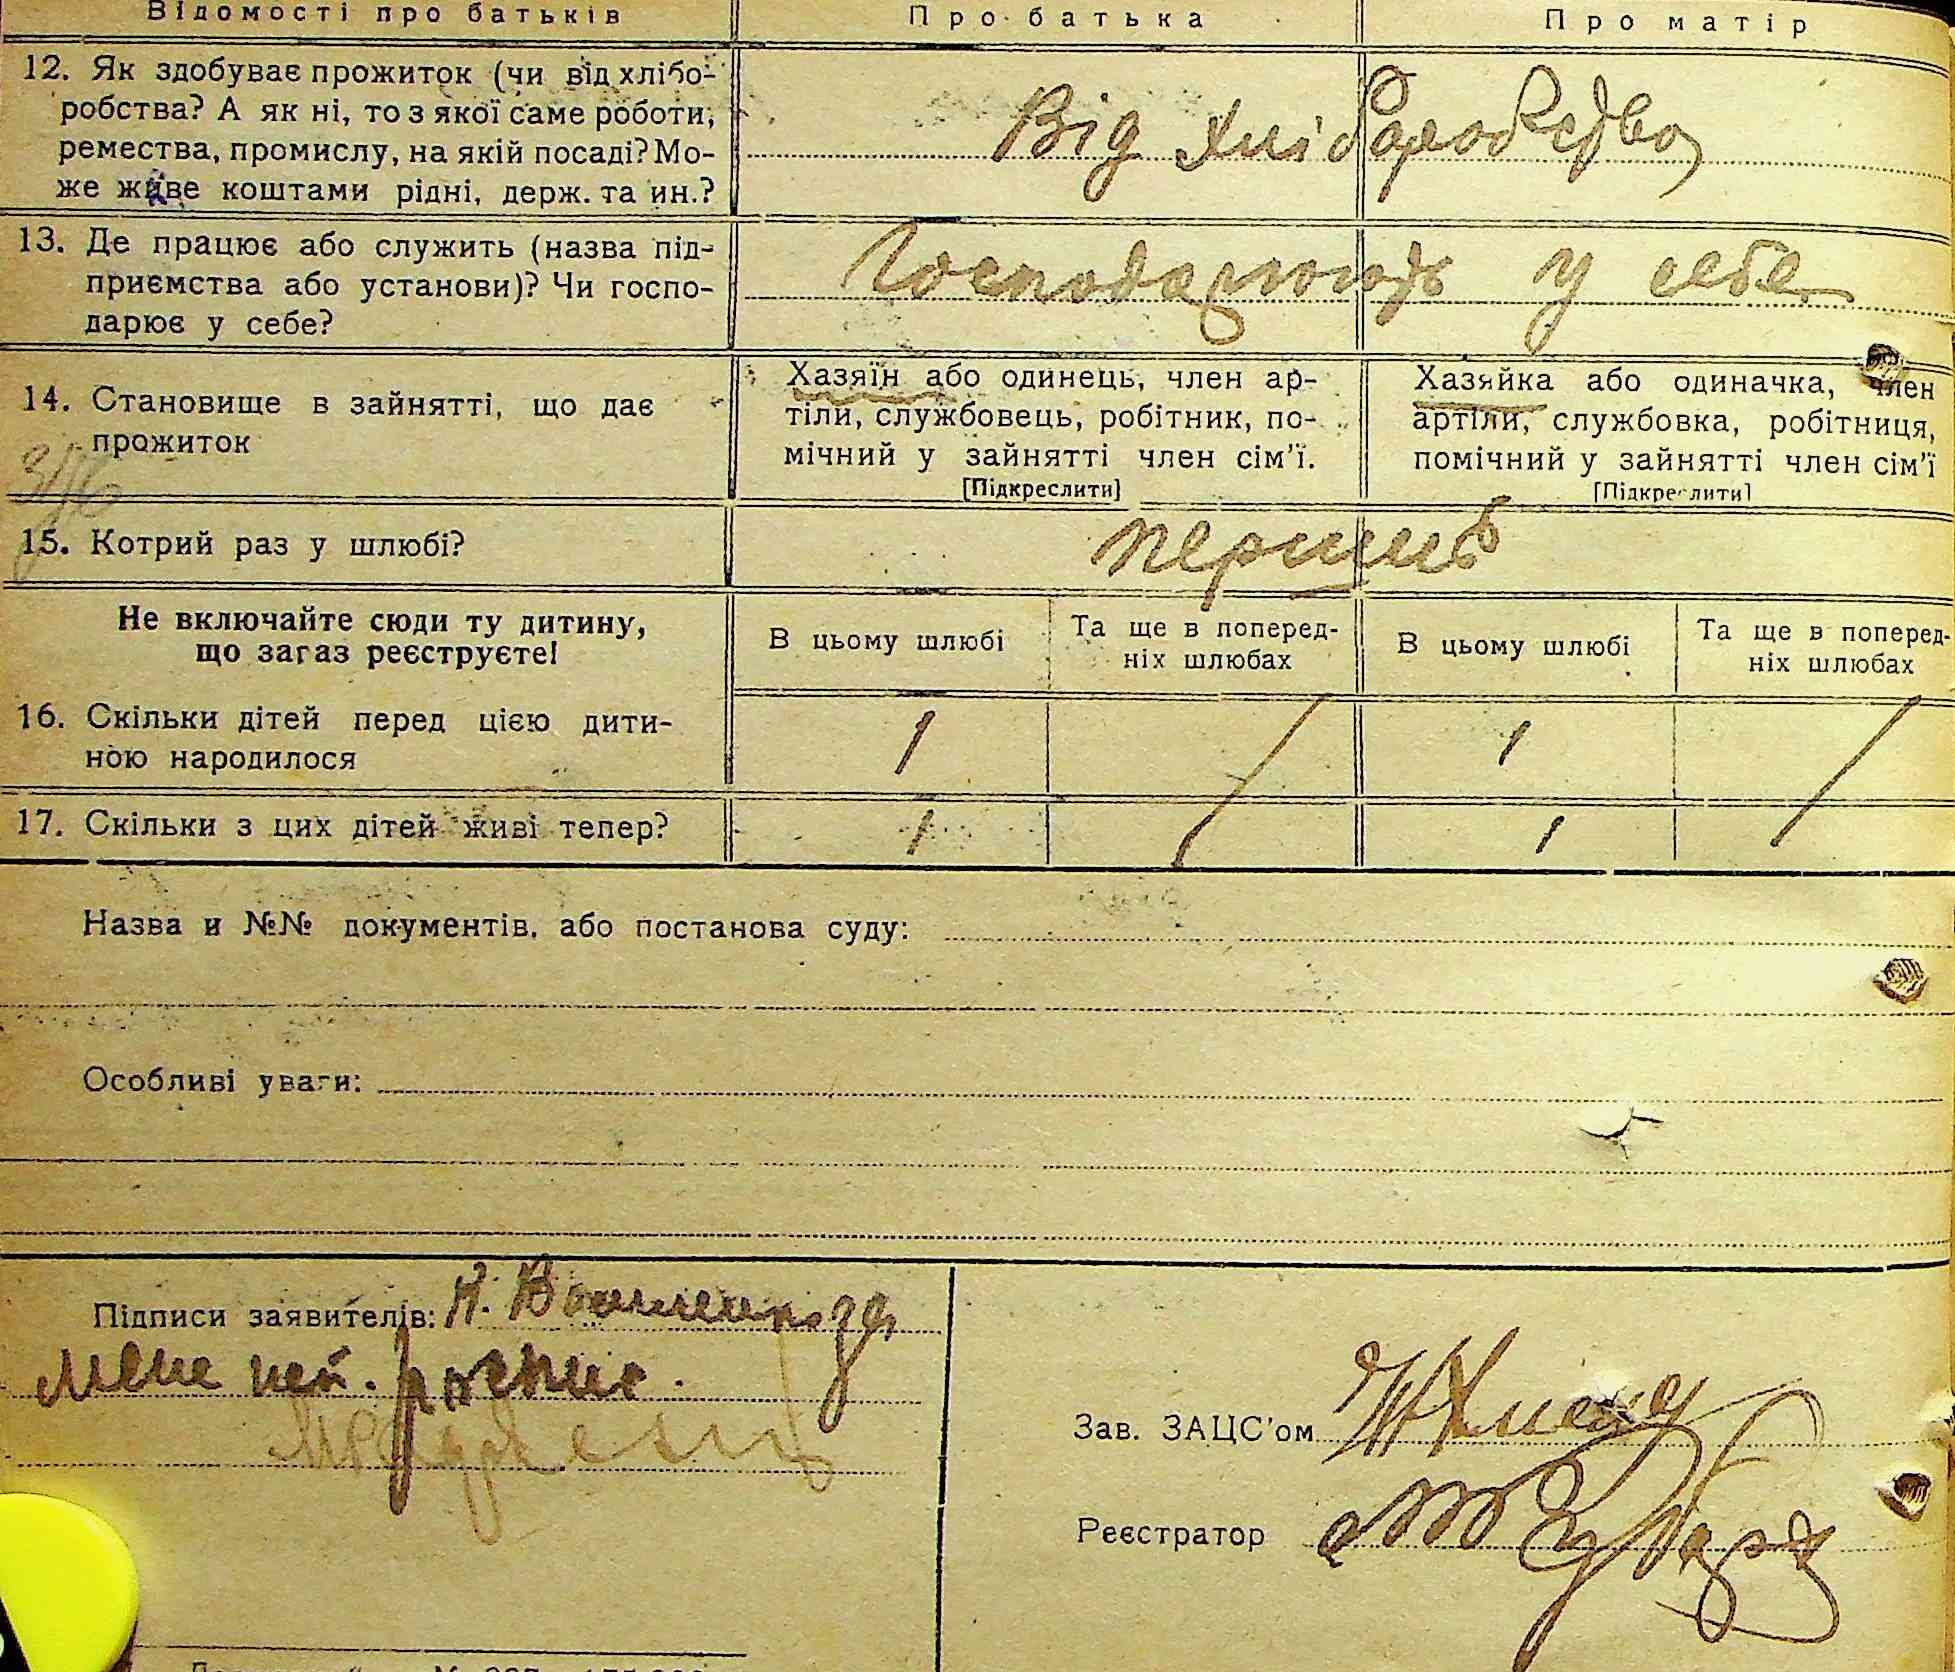 Відомості про батьків Про батька Про матір
12. Як здобуває прожиток (чи від хлібо-
робства? А як ні, то з якої саме роботи,
ремества, промислу, на якій посаді? Мо-
же живе коштами рідні, держ. та ин.?
Від хліборобства
13. Де працює або служить (назва під-
приємства або установи)? Чи госпо-
дарює у себе?
Господарюють у себе
14. Становище в зайнятті, що дає
прожиток
Хазяїн або одинець, член ар-
тіли, службовець, робітник, по-
мічний у зайнятті член сім'ї.
[Підкреслити]
Хазяйка або одиначка, член
артіли, службовка, робітниця,
помічний у зайнятті член сім'ї
[Підкреслити]
15. Котрий раз у шлюбі?
перший
Не включайте сюди ту дитину,
що зараз реєструєте!
В цьому шлюбі
Та ще в поперед-
ніх шлюбах
В цьому шлюбі
Та ще в поперед-
ніх шлюбах
16. Скільки дітей перед цією дити-
ною народилося
1 / 1 /
17. Скільки з цих дітей живі тепер?
1 1
Назва и №№ документів, або постанова суду:
Особливі уваги:
Підписи заявителів:
Зав. ЗАЦС'ом
Реєстратор